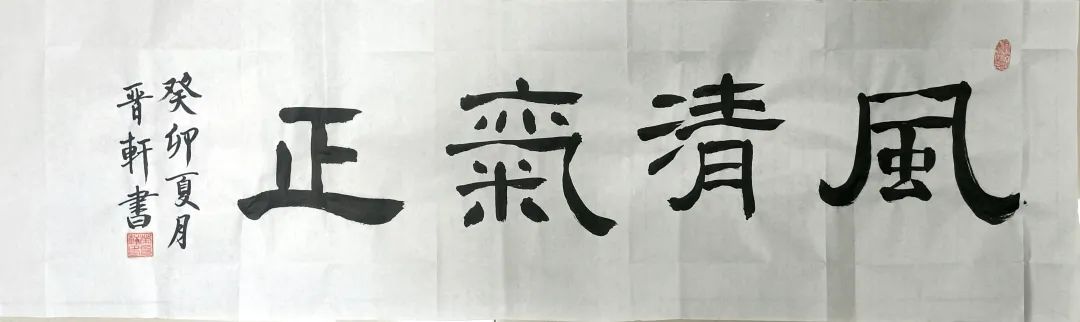 風清氣正
癸卯夏月
晉軒書